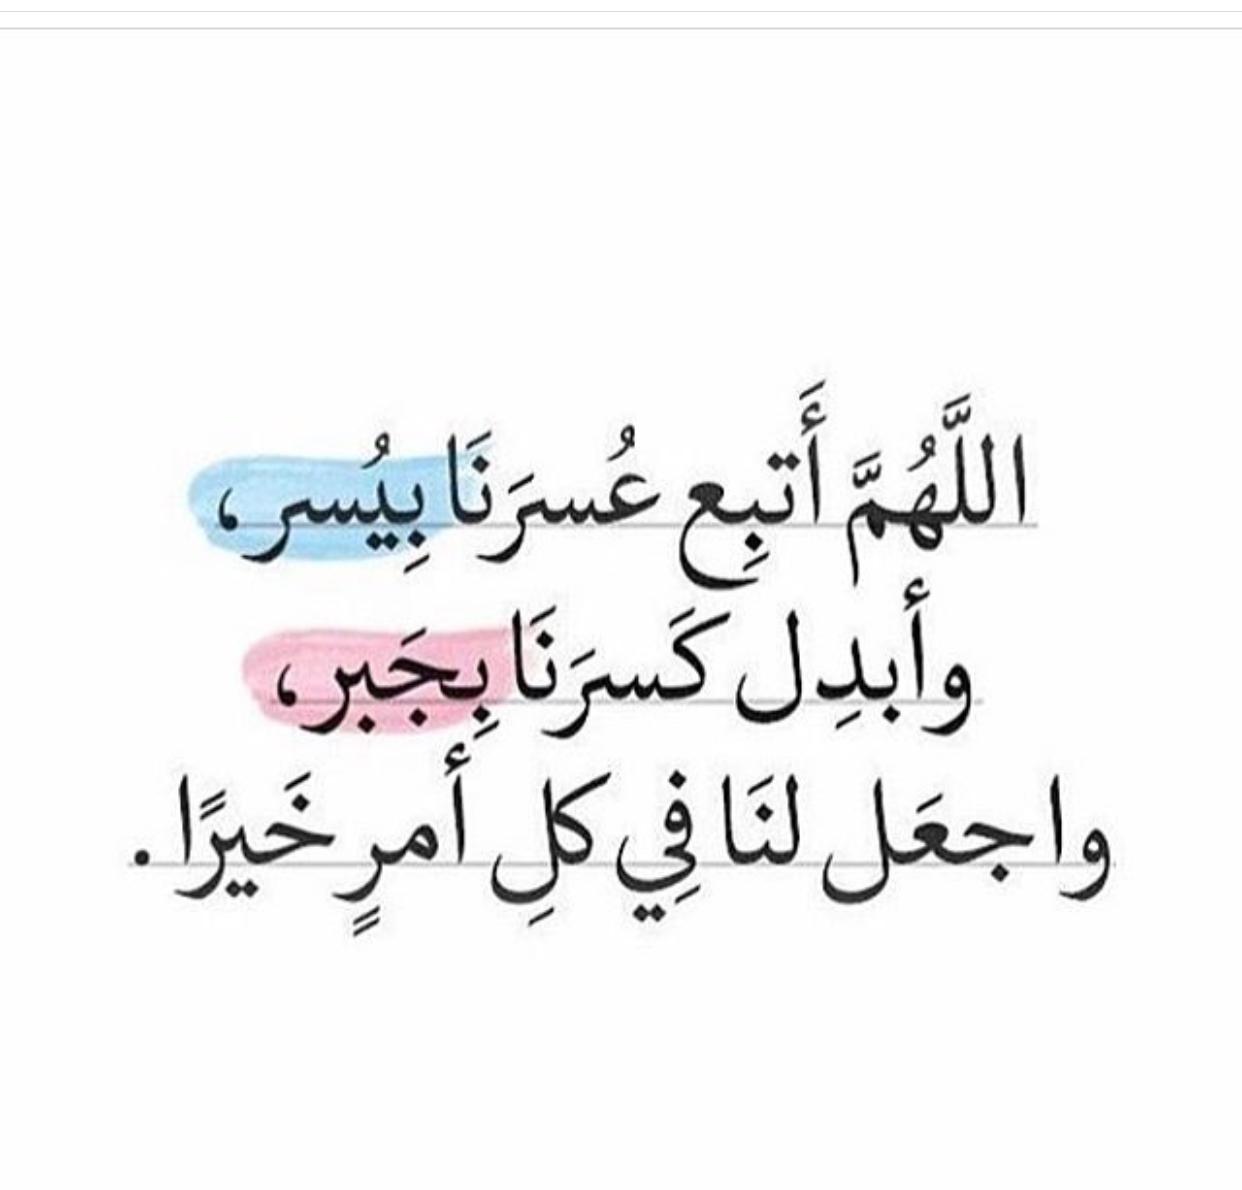 اللَّهُمَّ أَتبِع عُسرَنَا بِيُسر،
وأبدِل كَسرَنَا بِجَبر،
واجعَل لنَا فِي كلِ أمرٍ خَيرًا.